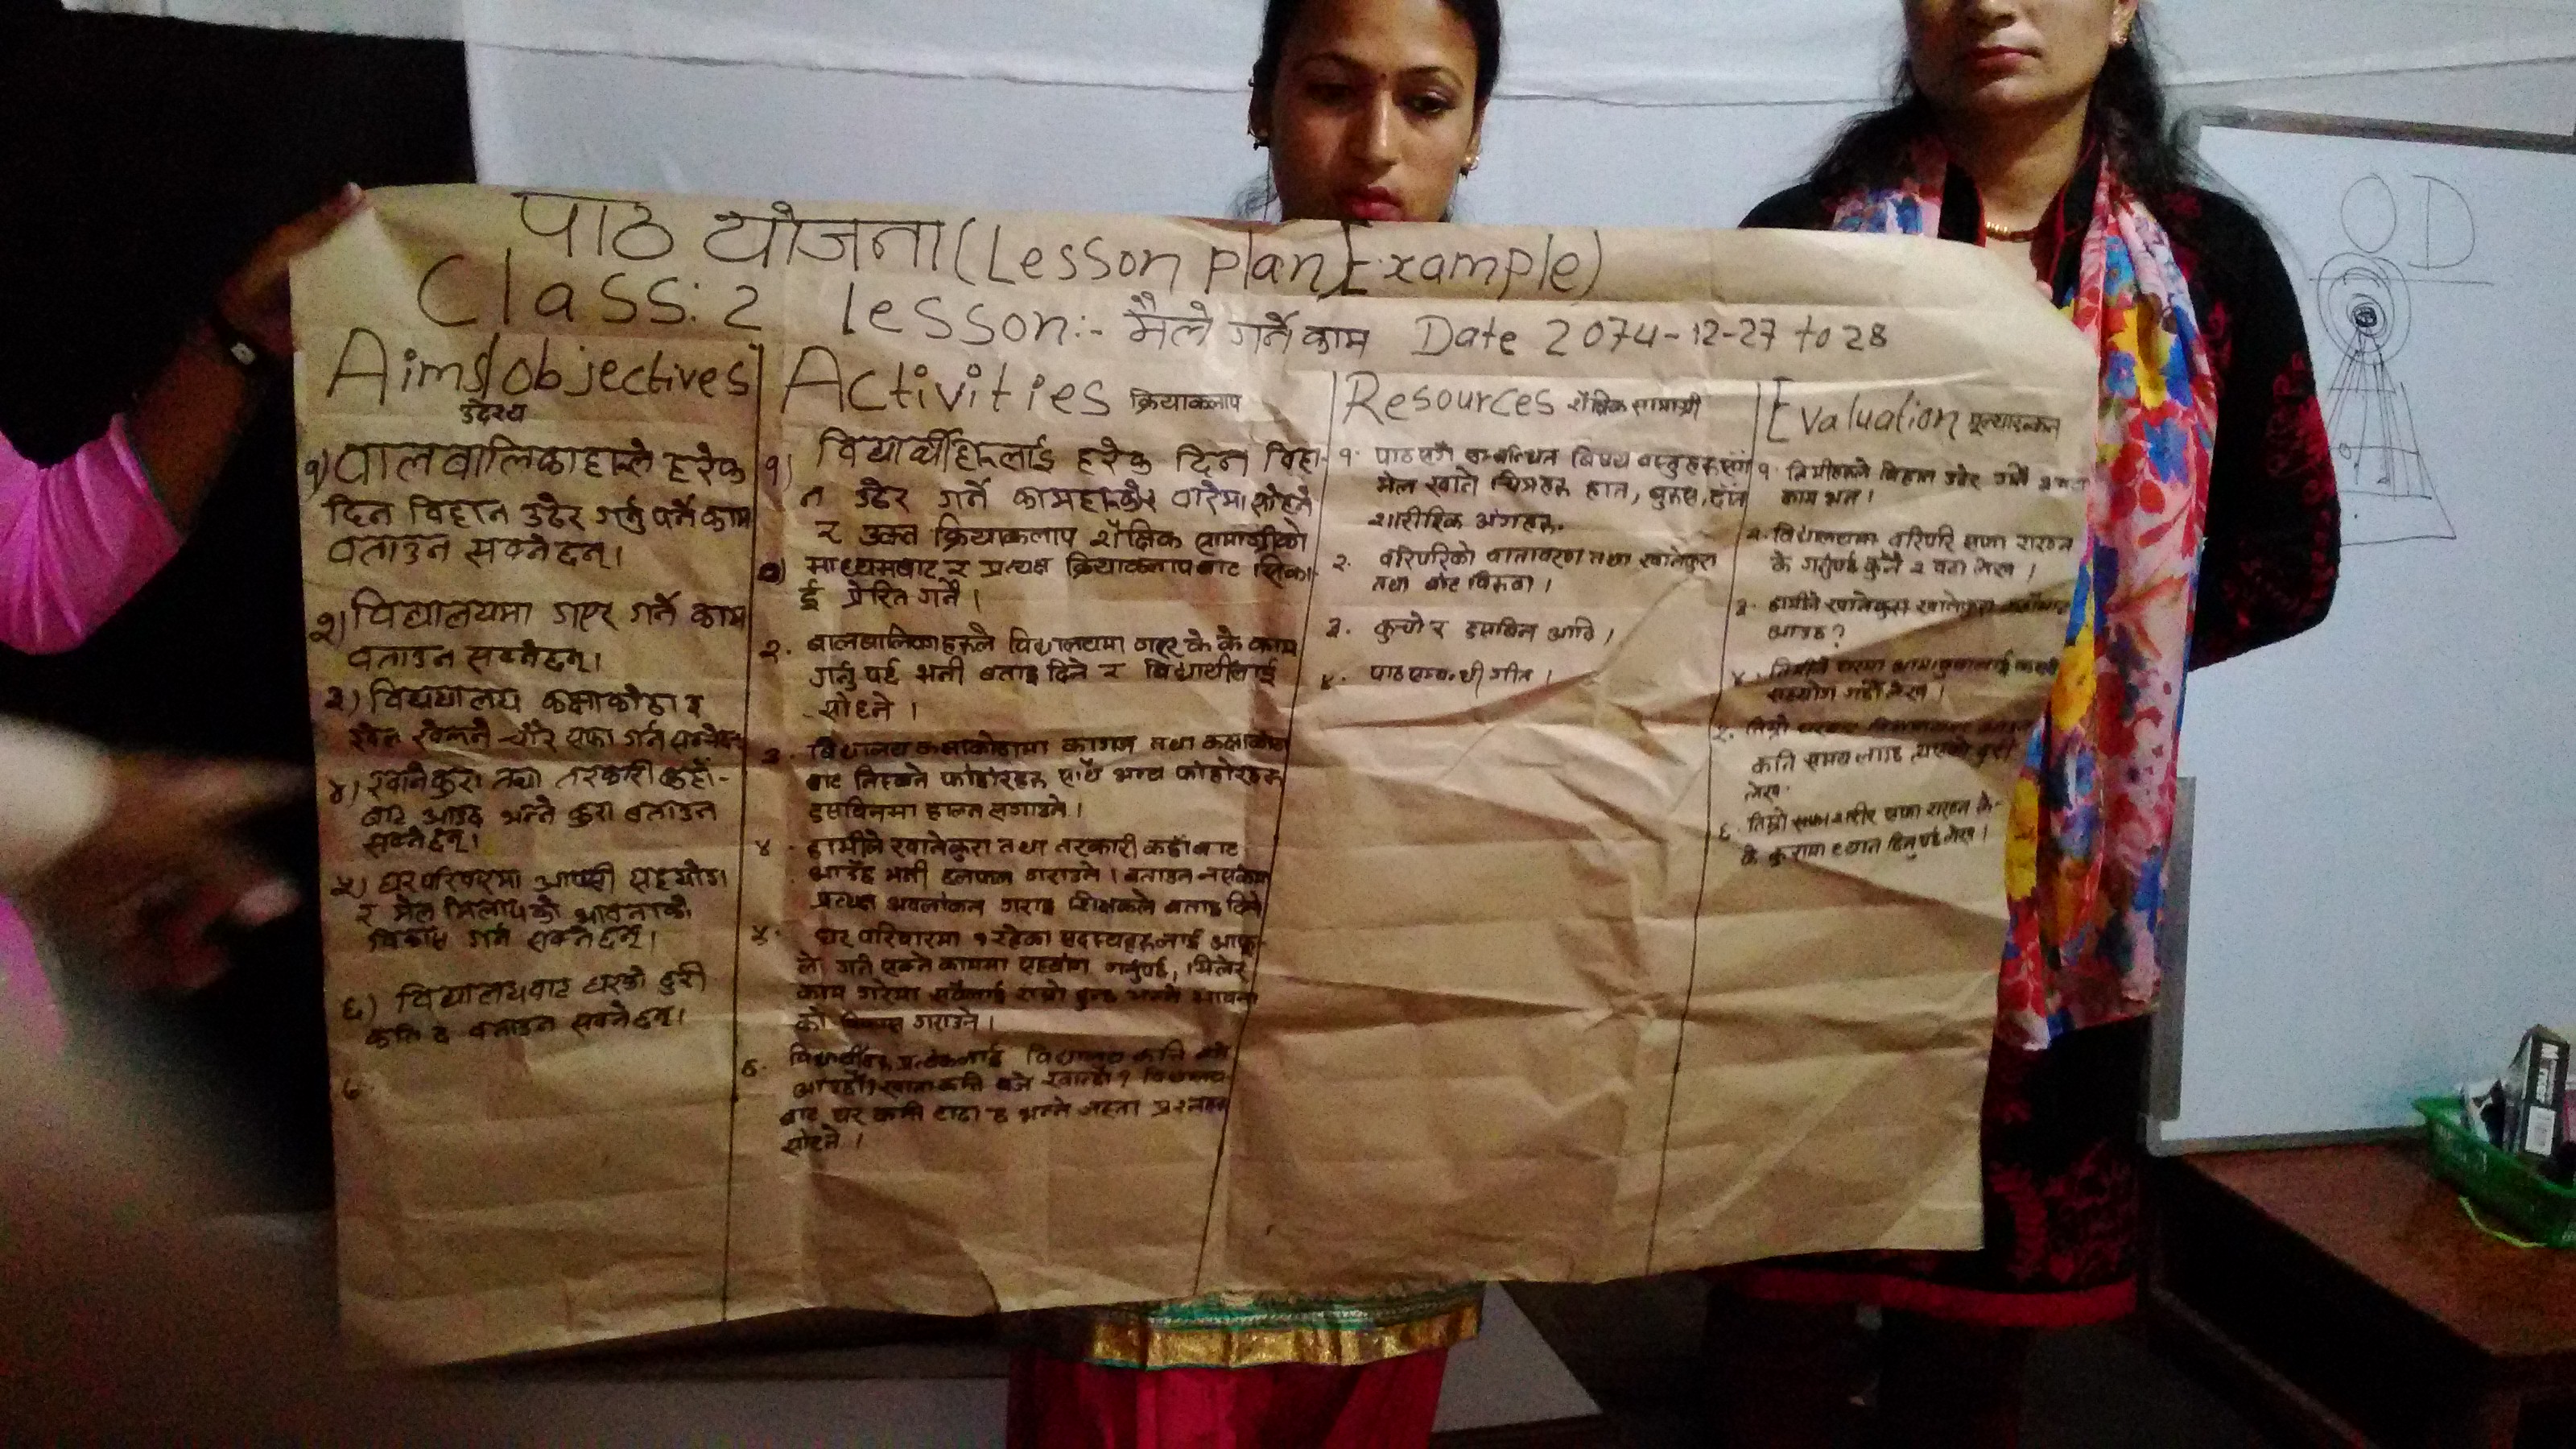 पाठ योजना (Lesson plan Example)
Class: 2 lesson:- मैले गर्ने काम Date 2074-12-27 to 28
Aims/objectives
उद्देश्य
१) वालवालिकाहरुले हरेक
दिन विहान उठेर गर्नु पर्ने काम
वताउन सक्नेछन्।
२) विद्यालयमा गएर गर्ने काम
वताउन सक्नेछन्।
३) विद्यालय कक्षाकोठा र
खेल खेल्ने चौर सफा गर्न सक्नेछन्
४) खानेकुरा तथा तरकारी कहाँ-
वाट आउछ भन्ने कुरा बताउन
सक्नेछन्।
५) घरपरिवारमा आपसी सहयोग
र मेल मिलापको भावनाको
विकास गर्न सक्नेछन्।
६) विद्यालयवाट घरको दुरी
कति छ वताउन सक्नेछन्।
७
Activities क्रियाकलाप
१) विद्यार्थीहरुलाई हरेक दिन विहा-
न उठेर गर्ने कामहरुको वारेमा सोध्ने
र उक्त क्रियाकलाप शैक्षिक सामाग्रीको
माध्यमवाट र प्रत्यक्ष क्रियाकलापबाट सिका
ई प्रेरित गर्ने।
२. बालबालिकाहरुले विद्यालयमा गएर के के काम
गर्नु पर्छ भनी बताइ दिने र विद्यार्थीलाई
सोध्ने।
३. विद्यालय कक्षाकोठामा कागज तथा कक्षाकोठा
बाट निस्कने फोहोरहरु साथै अन्य फोहोरहरु
डसविनमा हाल्न लगाउने।
४. हामीले खानेकुरा तथा तरकारी कहाँ बाट
आउँछ भनी छलफल गराउने। बताउन नसकेमा
प्रत्यक्ष अवलोकन गराइ शिक्षकले बताइ दिने
५. घर परिवारमा रहेका सदस्यहरुलाई आफु-
ले गर्न सक्ने काममा सहयोग गर्नुपर्छ, मिलेर
काम गरेमा सबैलाई राम्रो हुन्छ भन्ने भावना
को विकास गराउने।
६. विद्यार्थीहरु प्रत्येकलाई विद्यालय कति बजे
आउछौ? खाना कति बजे खान्छौ? विद्यालय
बाट घर कति टाढा छ भन्ने जस्ता प्रश्नहरु
सोध्ने।
Resources शैक्षिक सामाग्री
१. पाठसँग सम्बन्धित विषय वस्तुहरुसंग
मेल खाने चित्रहरु हात, बुरुस, दाँत
शारीरिक अंगहरु.
२. वरिपरिको वातावरण तथा खानेकुरा
तथा बोट विरुवा।
३. कुचो र डसविन आदि।
४. पाठसम्बन्धी गीत।
Evaluation मूल्याङकन
१. तिमीहरुले बिहान उठेर गर्ने
काम भन।
२. विद्यालयमा वरिपरि सफा राख्न
के गर्नुपर्छ कुनै २ वटा लेख।
३. हामीले खानेकुरा
आउछ?
४. तिमीले घरमा आमाबुवालाई
सहयोग गर्छौ लेख।
५. तिम्रो घरबाट
कति समय लाग्छ त्यसको दुरी
लेख.
६. तिम्रो शरीर सफा राख्न के-
के कुरामा ध्यान दिनुपर्छ लेख।
D